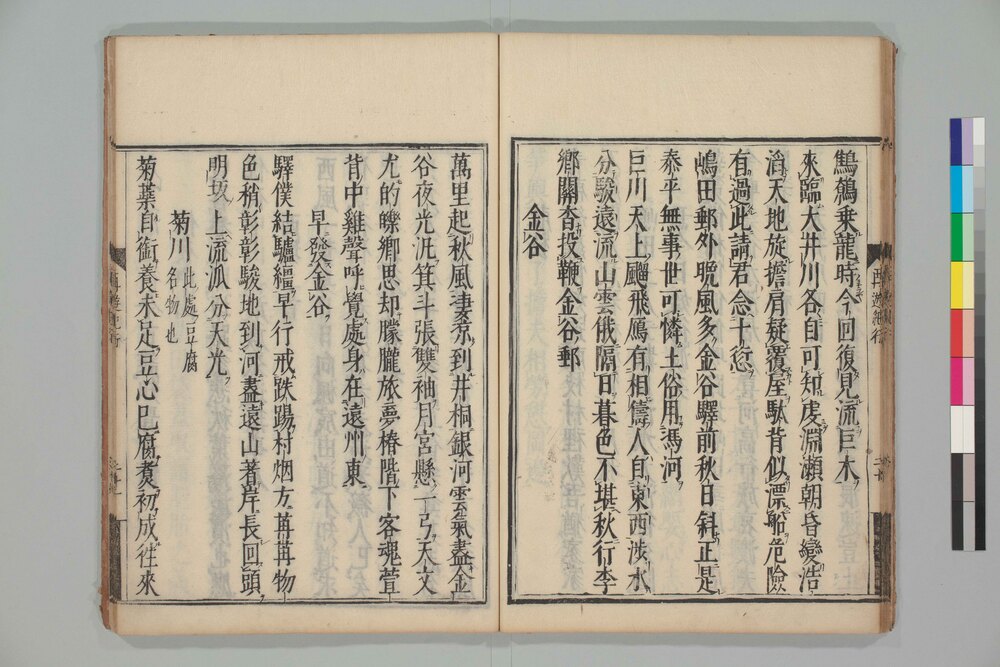 鷦鷯乗龍時今回復見流巨木
來臨大井川各自可知虔淵瀬朝昏變浩
滔天地旋擔肩疑覆屋駄背似漂船危險
有過此請君念十愆
嶋田郵外晩風多金谷驛前秋日斜正是
泰平無事世可憐土俗用馮河
巨川天上颺飛鳫有相儔人自東西渉水
分駿遠流山雲俄隔日暮色不堪秋行李
鄉關杳投鞭金谷郵
金谷
萬里起秋風凄涼到井桐銀河雲氣盡金
谷夜光汎箕斗張雙袖月宮懸一弓天文
尤的皪鄉思却朦朧旅夢椿階下客魂萱
背中雞聲呼覺處身在遠州東
早發金谷
驛僕結驢繮早行戒跌踢村烟方苒苒物
色稍彰彰駿地到河盡遠山著岸長回頭
明坂上流派分天光
菊川此處豆腐名物也
菊葉自銜養未足豆心已腐煑初成往來
再遊紀行